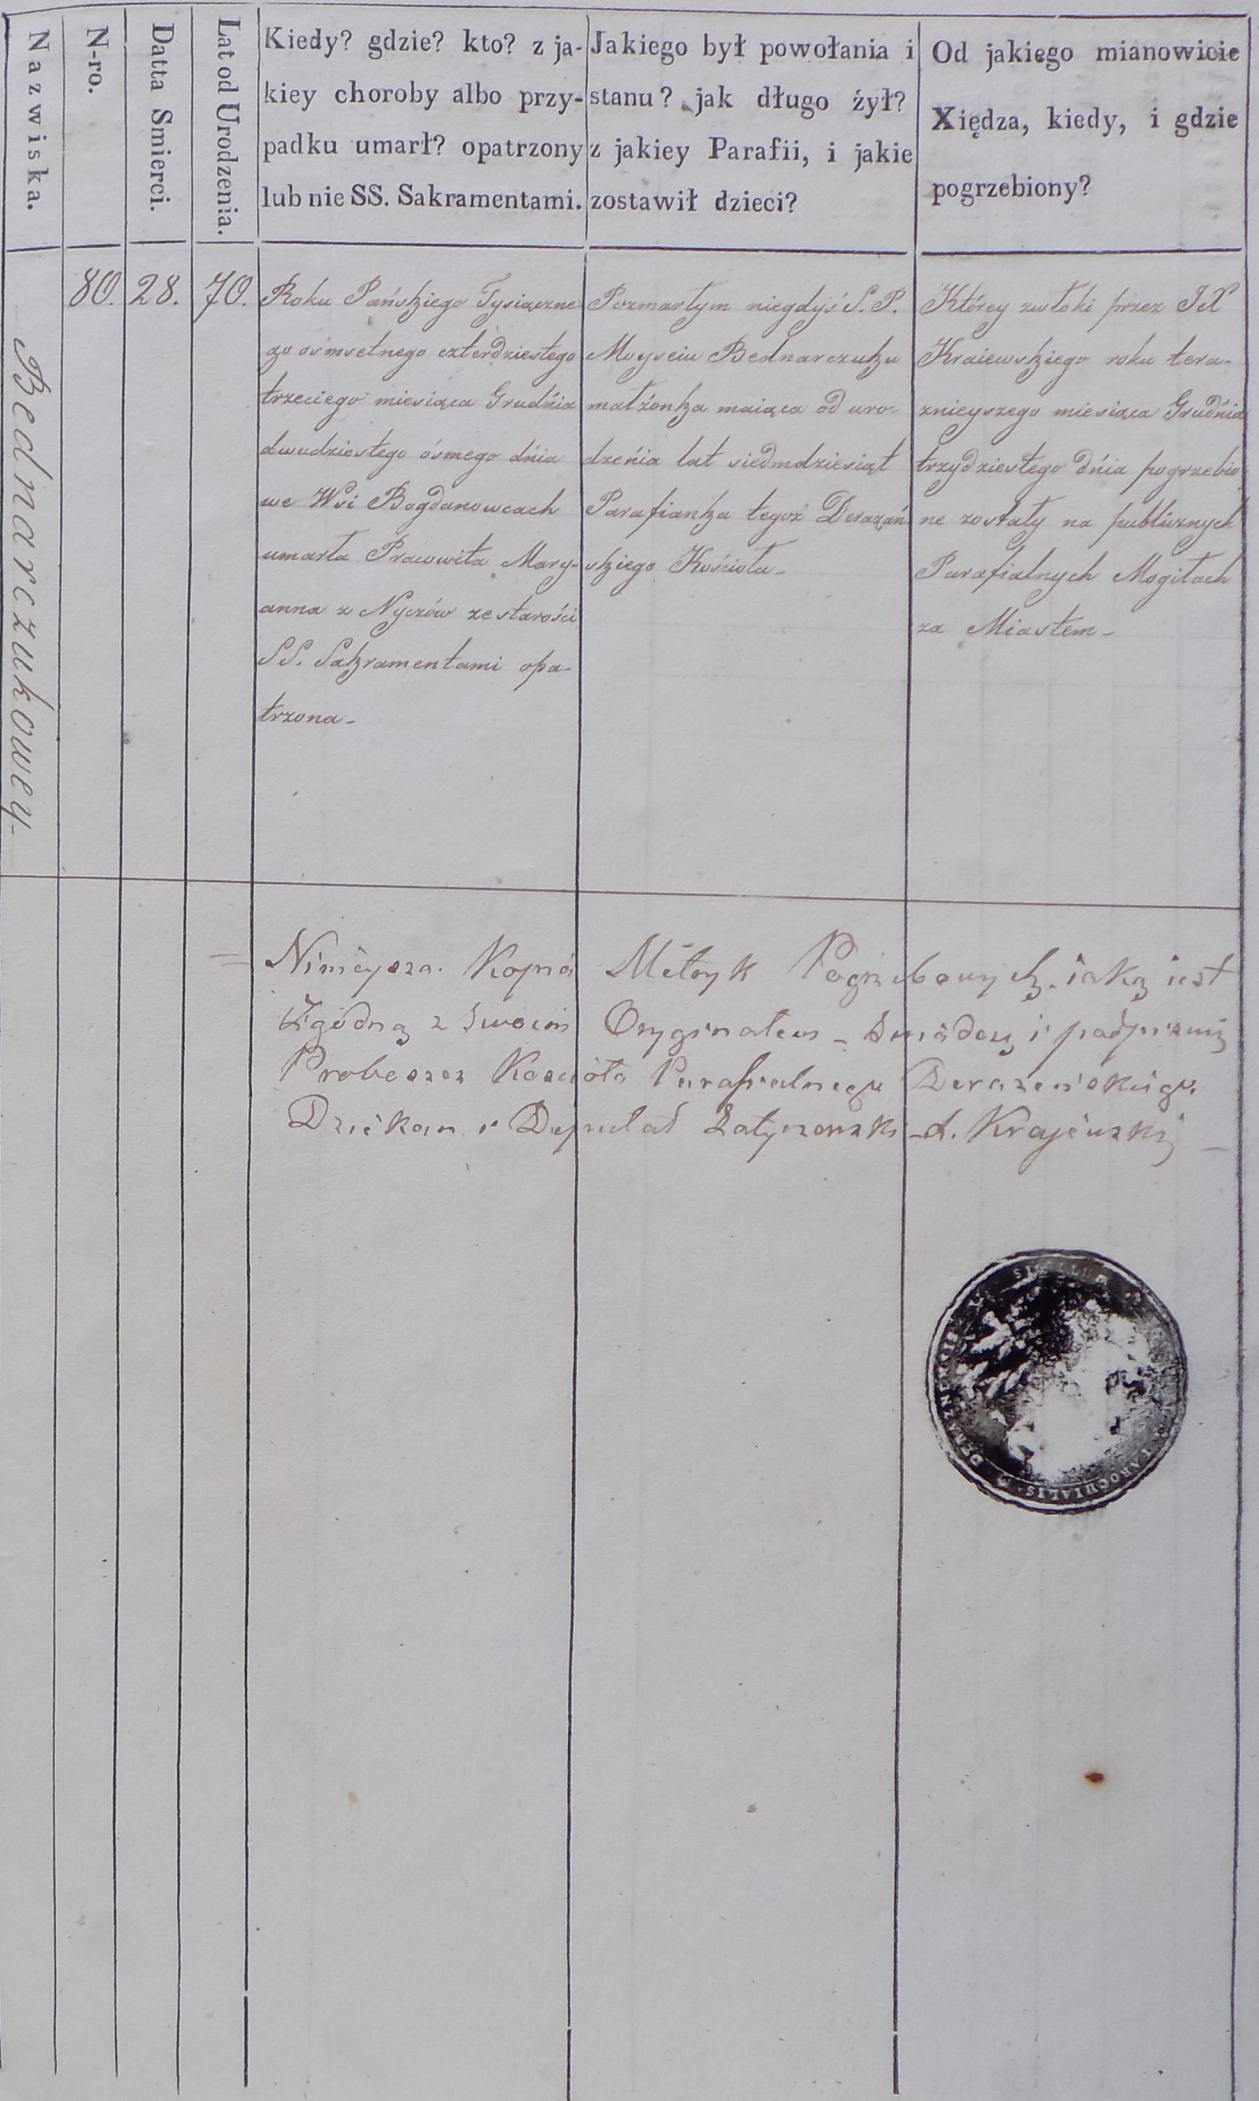 Nazwiska.
N-ro.
Datta Smierci.
Lat od Urodzenia.
Kiedy? gdzie? kto? z ja-
kiey choroby albo przy-
padku umarł? opatrzony
lub nie SS. Sakramentami.
Jakiego był powołania i
stanu? jak długo żył?
z jakiey Parafii, i jakie
zostawił dzieci?
Od jakiego mianowicie
Xiędza, kiedy, i gdzie
pogrzebiony?
Bednarczukowey-
80.
28.
70.
Roku Pańskiego Tysiączne
go ośmsetnego czterdziestego
trzeciego miesiąca Grudnia
dwudziestego ósmego dnia
we Wsi Bogdanowcach
umarła Pracowita Mary-
anna z Nyczów ze starości
SS. Sakramentami opa-
trzona-
Pozmarłym niegdyś S. P.
Moyseiu Bednarczuku
małżonka maiąca od uro-
dzenia lat siedmdziesiąt
Parafianka tegoż Derazań
skiego Kościoła-
Którey zwłoki przez JX
Kraiewskiego roku tera-
znieyszego miesiąca Grudnia
trzydziestego dnia pogrzebio
ne zostały na publicznych
Parafialnych Mogiłach
za Miastem-
Kopia Metryk Pogrzebowych. iako iest
Zgodną z Swoim Oryginałem -
Proboszcz Kościoła Parafialnego
Dziekan i Deputat Latyczowski -
SIGILLUM
PAROCHIALIS